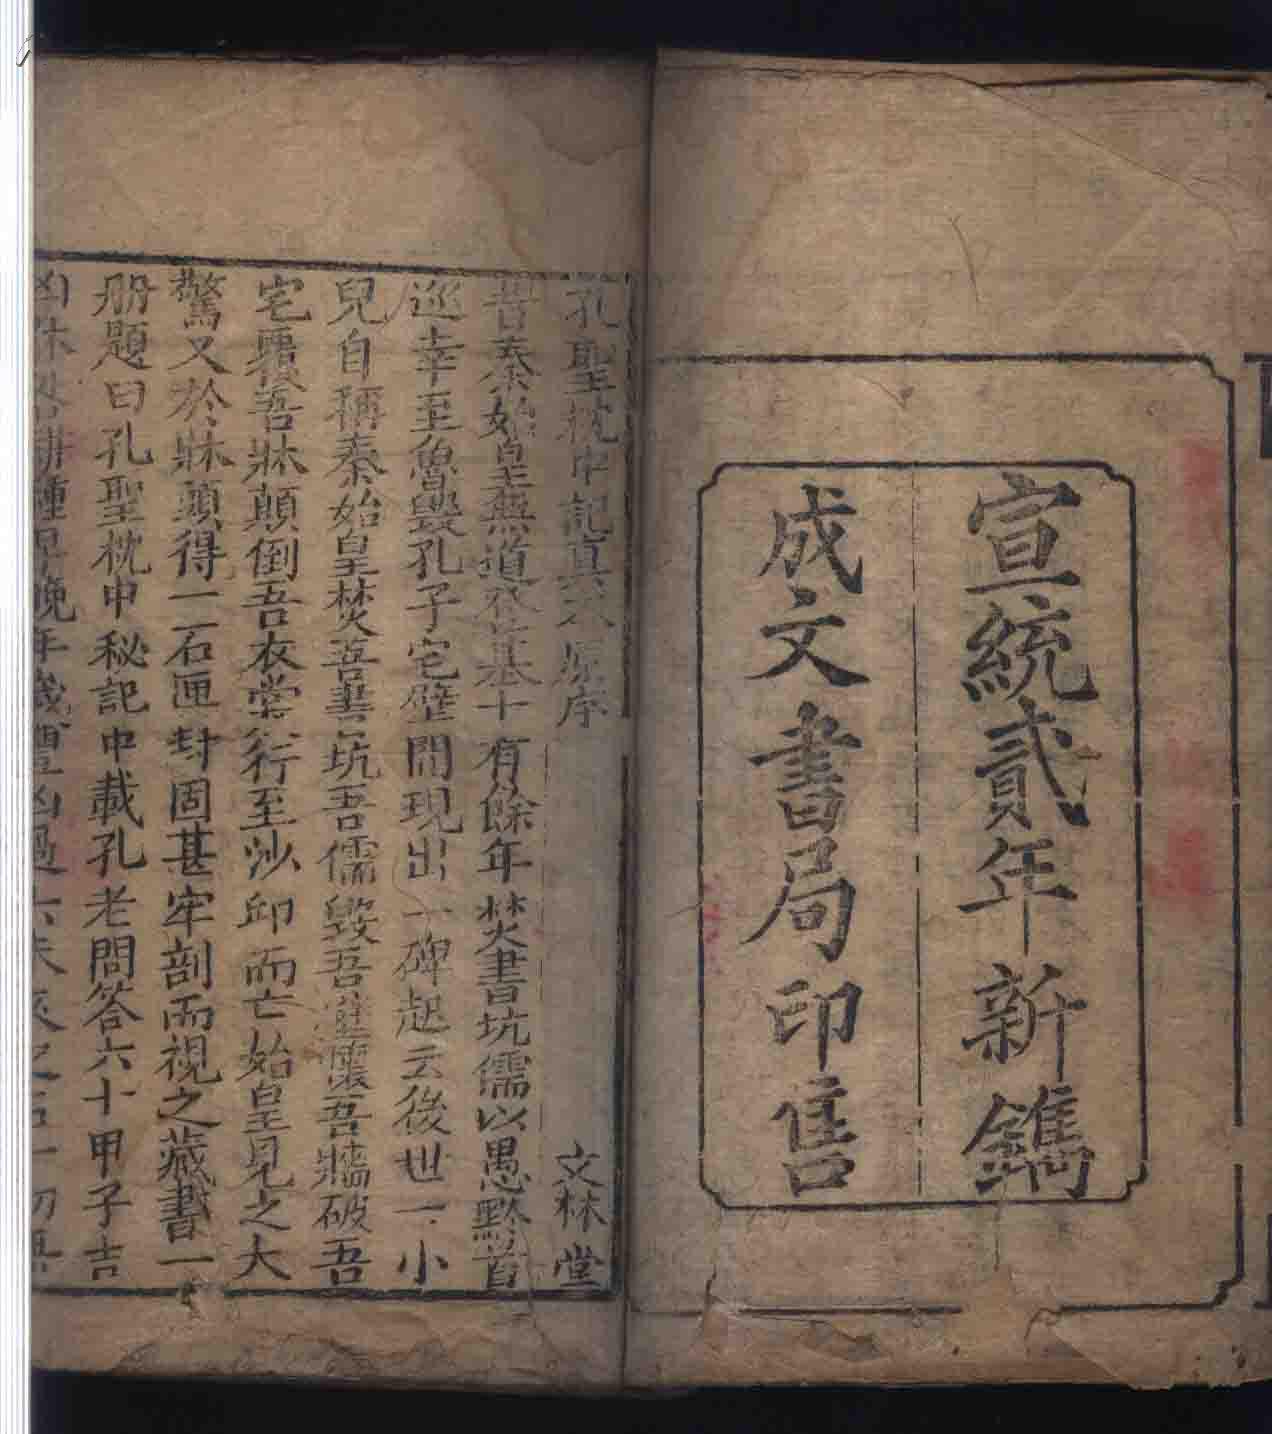 宣統貳年新鐫
成文書局印售
孔聖枕中記真本原序 文林堂
昔秦始皇無道登基十有餘年焚書坑儒以愚黔首
巡幸至魯毀孔子宅壁間現出一碑起云後世一小
兒自稱秦始皇焚吾書坑吾儒毀吾墻破吾
宅襄吾牀顛倒吾衣裳行至沙邱而亡始皇見之大
驚又於牀頭得一石匣封固甚牢剖而視之藏書一
册題曰孔聖枕中秘記中載孔老問答六十甲子吉
凶休咎耕種早晚年歲豐凶